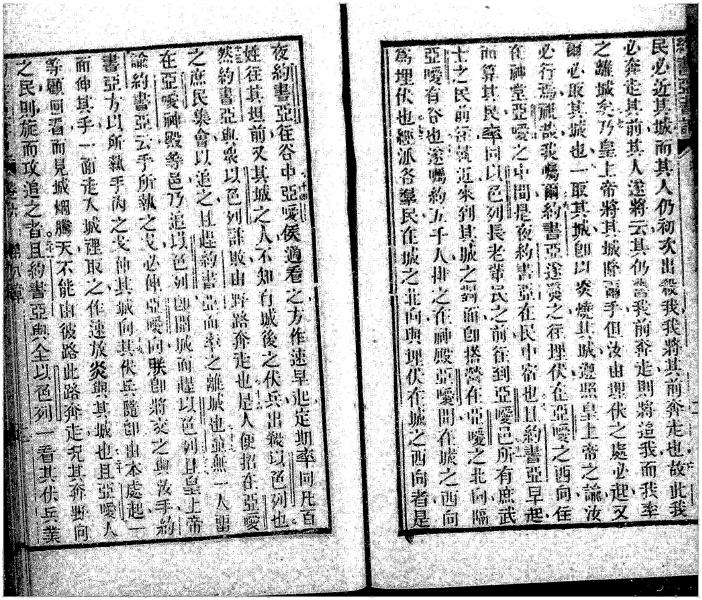 民必近其城而其人仍初次出殺我我將其前奔走也故此我
必奔走其前其人遂將云其仍舊我前奔走則將追我而我率
之離城矣乃皇上帝將其城降爾手但汝由埋伏之處必起又
爾必取其城也一取其城即以炎燒其城遵照皇上帝之諭汝
必行焉視哉我囑爾約書亞遂遣之往埋伏在亞曖之西向住
在神堂亞曖之中間是夜約書亞在民中宿也且約書亞早起
而算其民率同以色列長老輩民之前往到亞曖邑所有庶武
士之民前往就近來到其城之對面即搭營在亞曖之北向隔
亞曖有谷也遂囑約五千人排之在神殿亞曖間在城之西向
爲埋伏也經派各羣民在城之北向與埋伏在城之西向者是
夜約書亞往谷中亞曖侯適看之方作速早起定期率同凡百
姓往其坦前又其城之人不知有城後之伏兵出殺以色列也
然約書亞與衆以色列詐敗由野路奔走也是人便招在亞曖
之庶民集會以追之且趕約書亞而率之離城也並無一人留
在亞曖神殿等邑乃追以色列即開城而趕以色列且皇上帝
諭約書亞云手所執之戈必伸亞曖向朕即將交之與汝手約
書亞方以所執手內之戈伸其城向其伏兵隨即由本處起一
而伸其手一面走入城裡取之作速放炎與其城也且亞曖人
等顧回看而見城烟騰天不能由彼路此路奔走況其奔野向
之民則旋而攻追之者且約書亞與全以色列一看其伏兵業